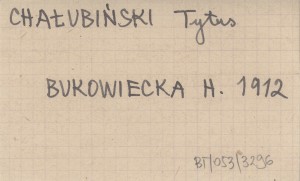 CHAŁUBIŃSKI Tytus
BUKOWIECKA H. 1912
BT/053/3296